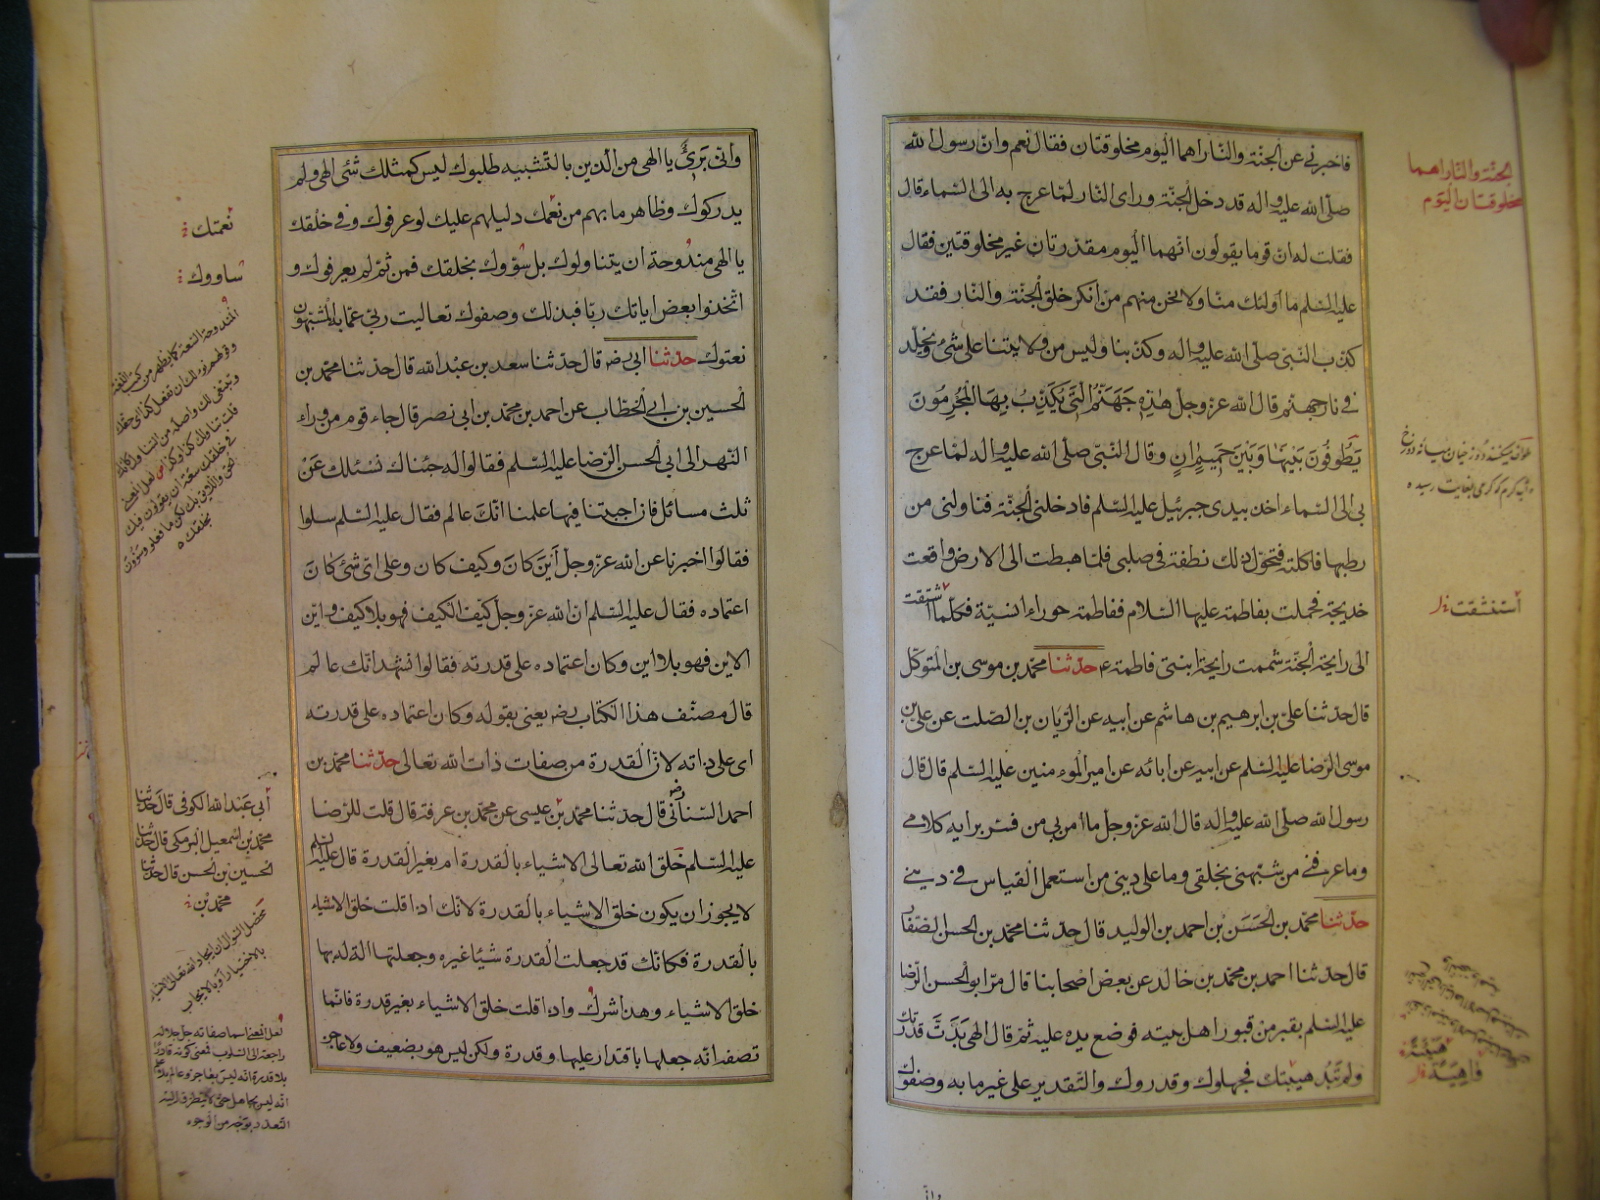 فاخبرني عن الجنة والنار اهما اليوم مخلوقتان فقال نعم وان رسول الله
صلى الله عليه واله قد دخل الجنة وراى النار لما عرج به الى السماء قال
فقلت له ان قوما يقولون انهما اليوم مقدرتان غير مخلوقتين فقال
عليه السلم ما اولئك منا ولا نحن منهم من انكر خلق الجنة والنار فقد
كذب النبي صلى الله عليه واله وكذبنا وليس من ولايتنا على شئ ويخلد
في نار جهنم قال الله عز وجل هذه جهنم التي يكذب بها المجرمون
يطوفون بينها وبين حميم ان وقال النبي صلى الله عليه واله لما عرج
بي الى السماء اخذ بيدى جبرئيل عليه السلم فادخلني الجنة فناولني من
رطبها فاكلته فتحول ذلك نطفة في صلبي فلما هبطت الى الارض واقعت
خديجة فحملت بفاطمة عليها السلام ففاطمة حوراء انسية فكلما اشتقت
الى رايحة الجنة شممت رايحة ابنتي فاطمة ع حدثنا محمد بن موسى بن المتوكل
قال حدثنا علي بن ابرهيم بن هاشم عن ابيه عن الريان بن الصلت عن علي بن
موسى الرضا عليه السلم عن ابيه عن ابائه عن امير المومنين عليه السلم قال قال
رسول الله صلى الله عليه واله قال الله عز وجل ما امن بي من فسر برايه كلامي
وما عرفني من شبهني بخلقي وما على ديني من استعمل القياس في ديني
حدثنا محمد بن الحسن بن احمد بن الوليد قال حدثنا محمد بن الحسن الصفار
قال حدثنا احمد بن محمد بن خالد عن بعض اصحابنا قال مر ابو الحسن الرضا
عليه السلم بقبر من قبور اهل بيته فوضع يده عليه ثم قال الهي بدت قدرتك
ولم تبد هيبتك فجهلوك وقدروك والتقدير على غير ما به وصفوك
الجنة والنار اهما
مخلوقتان اليوم
استنشقت
هيئة
واني برئ يا الهي من الذين بالتشبيه طلبوك ليس كمثلك شئ الهي ولم
يدركوك وظاهر ما بهم من نعمك دليلهم عليك لو عرفوك وفي خلقك
يا الهي مندوحة ان يتناولوك بل سؤوك بخلقك فمن ثم لم يعرفوك و
اتخذوا بعض اياتك ربا فبذلك وصفوك تعاليت ربي عما به المشبهون
نعتوك حدثنا ابي رضه قال حدثنا سعد بن عبد الله قال حدثنا محمد بن
الحسين بن ابي الخطاب عن احمد بن محمد بن ابي نصر قال جاء قوم من وراء
النهر الى ابي الحسن الرضا عليه السلم فقالوا له جئناك نسئلك عن
ثلث مسائل فان اجبتنا فيها علمنا انك عالم فقال عليه السلم سلوا
فقالوا اخبرنا عن الله عز وجل اين كان وكيف كان وعلى اى شئ كان
اعتماده فقال عليه السلم ان الله عز وجل كيف الكيف فهو بلا كيف واين
الاين فهو بلا اين وكان اعتماده على قدرته فقالوا نشهد انك عالم
قال مصنف هذا الكتاب رضه يعني بقوله وكان اعتماده على قدرته
اى على ذاته لان القدرة من صفات ذات الله تعالى حدثنا محمد بن
احمد السناني رضه قال حدثنا محمد بن عيسى عن محمد بن عرفة قال قلت للرضا
عليه السلم خلق الله تعالى الاشياء بالقدرة ام بغير القدرة قال عليه السلم
لا يجوز ان يكون خلق الاشياء بالقدرة لانك اذا قلت خلق الاشياء
بالقدرة فكانك قد جعلت القدرة شيئا غيره وجعلتها الة له بها
خلق الاشياء وهذا شرك واذا قلت خلق الاشياء بغير قدرة فانما
تصفه انه جعلها باقتدار عليها وقدرة ولكن ليس هو بضعيف ولا عاجز
نعمتك
ساووك
ابي عبد الله الكوفي قال حدثنا
محمد بن اسمعيل البرمكي قال حدثنا
الحسين بن الحسن قال حدثنا
محمد بن